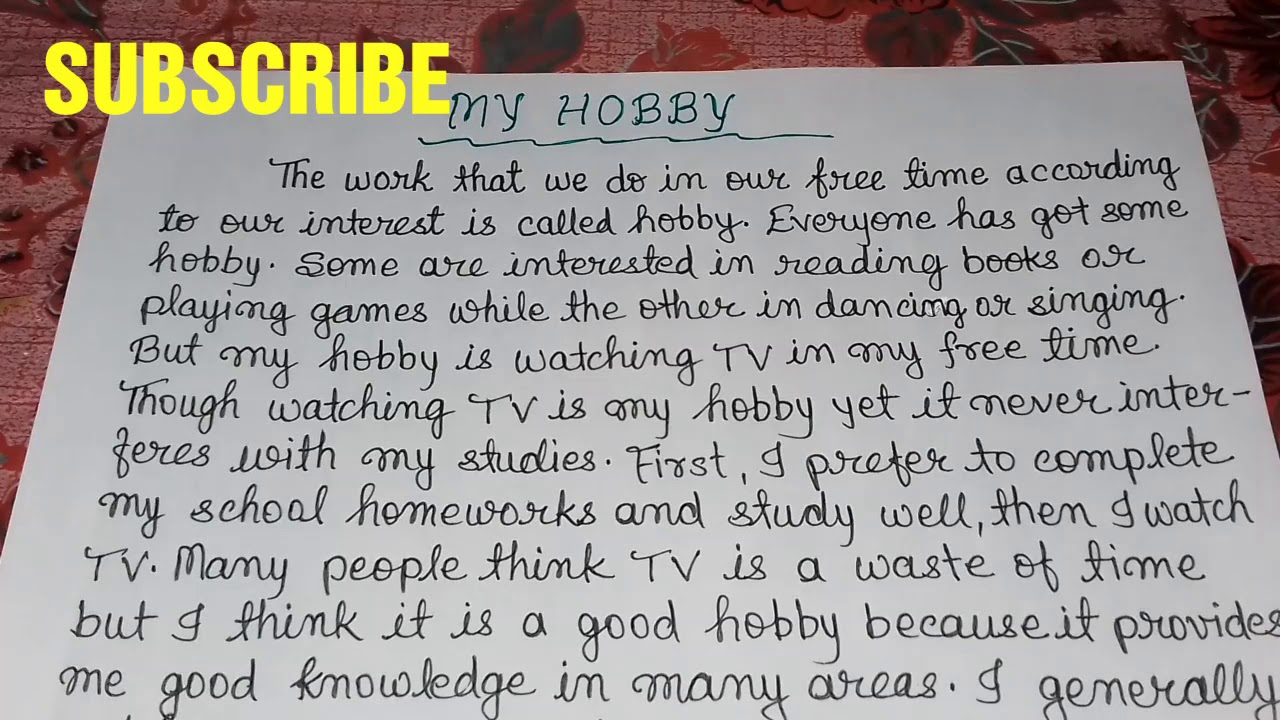 SUBSCRIBE
MY HOBBY
The work that we do in our free time according
to our interest is called hobby. Everyone has got some
hobby. Some are interested in reading books or
playing games while the other in dancing or singing.
But my hobby is watching TV in my free time.
Though watching TV is my hobby yet it never inter-
feres with my studies. First, I prefer to complete
my school homeworks and study well, then I watch
TV. Many people think TV is a waste of time
but I think it is a good hobby because it provides
me good knowledge in many areas. I generally